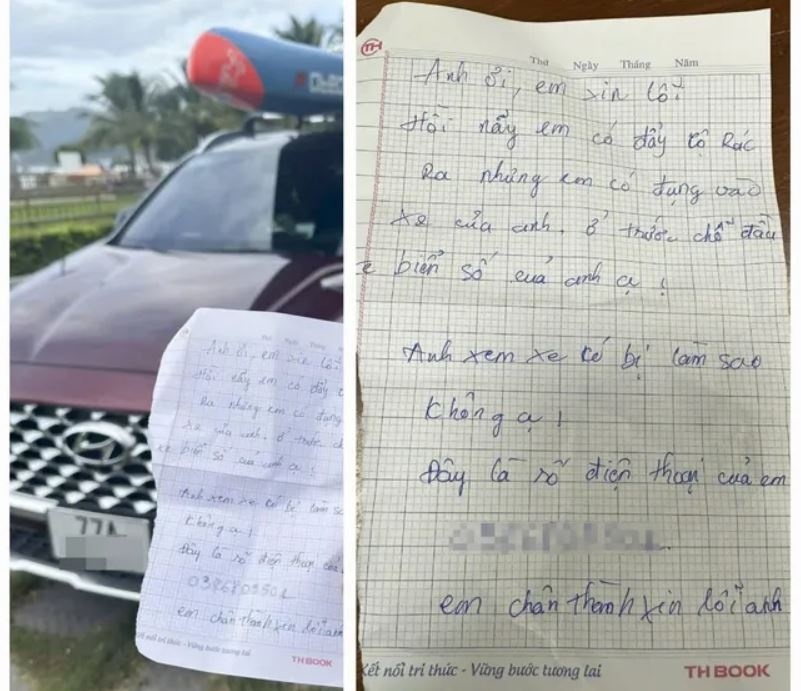 77A
Thứ Ngày Tháng
Anh ơi, em xin lỗi
Hồi nãy em có đẩy
Ra nhưng em có đụng
xe của anh. ở trước
xe biển số của anh ạ!
Anh xem xe có bị làm sao
không ạ!
Đây là số điện thoại của
em chân thành xin lỗi anh
Kết nối tri thức - Vững bước tương lai
TH BOOK
TH
Thứ Ngày Tháng Năm
Anh ơi, em xin lỗi
Hồi nãy em có đẩy cộ Rác
Ra nhưng em có đụng vào
xe của anh. ở trước chỗ đầu
xe biển số của anh ạ!
Anh xem xe có bị làm sao
không ạ!
Đây là số điện thoại của em
em chân thành xin lỗi anh
Kết nối tri thức - Vững bước tương lai
TH BOOK